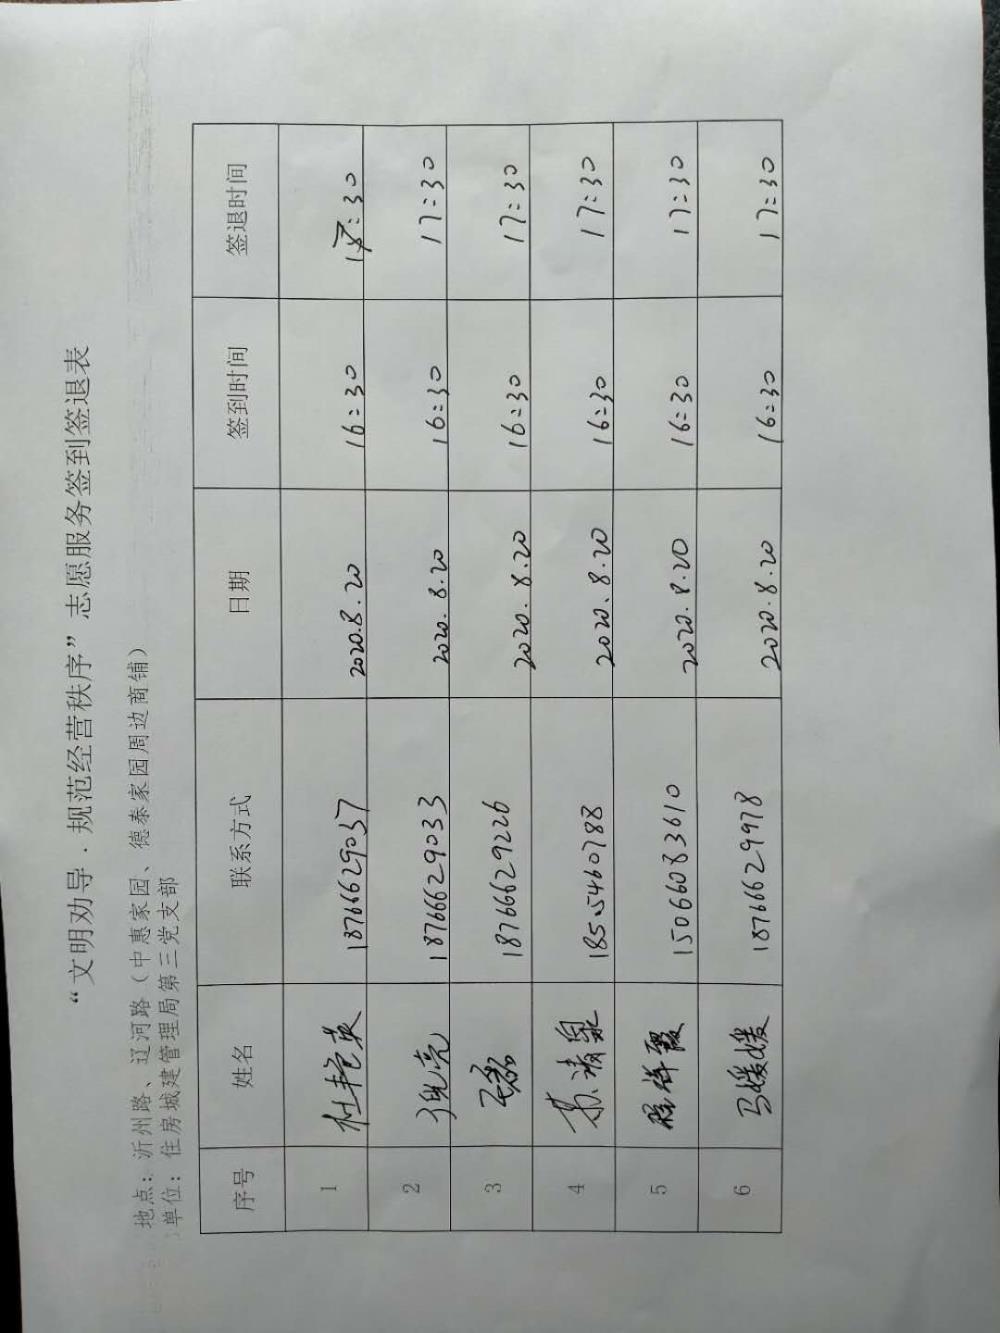 “文明劝导·规范经营秩序”志愿服务签到签退表
地点：沂州路、辽河路（中惠家园、德泰家园周边商铺）
单位：住房城建管理局第三党支部
序号 姓名 联系方式 日期 签到时间 签退时间
1 杜艳英 18766629037 2020.8.20 16:30 17:30
2 张亮 18766629033 2020.8.20 16:30 17:30
3 18766629226 2020.8.20 16:30 17:30
4 苏清泉 18505460788 2020.8.20 16:30 17:30
5 程祥霞 15066083610 2020.8.20 16:30 17:30
6 马媛媛 18766629978 2020.8.20 16:30 17:30